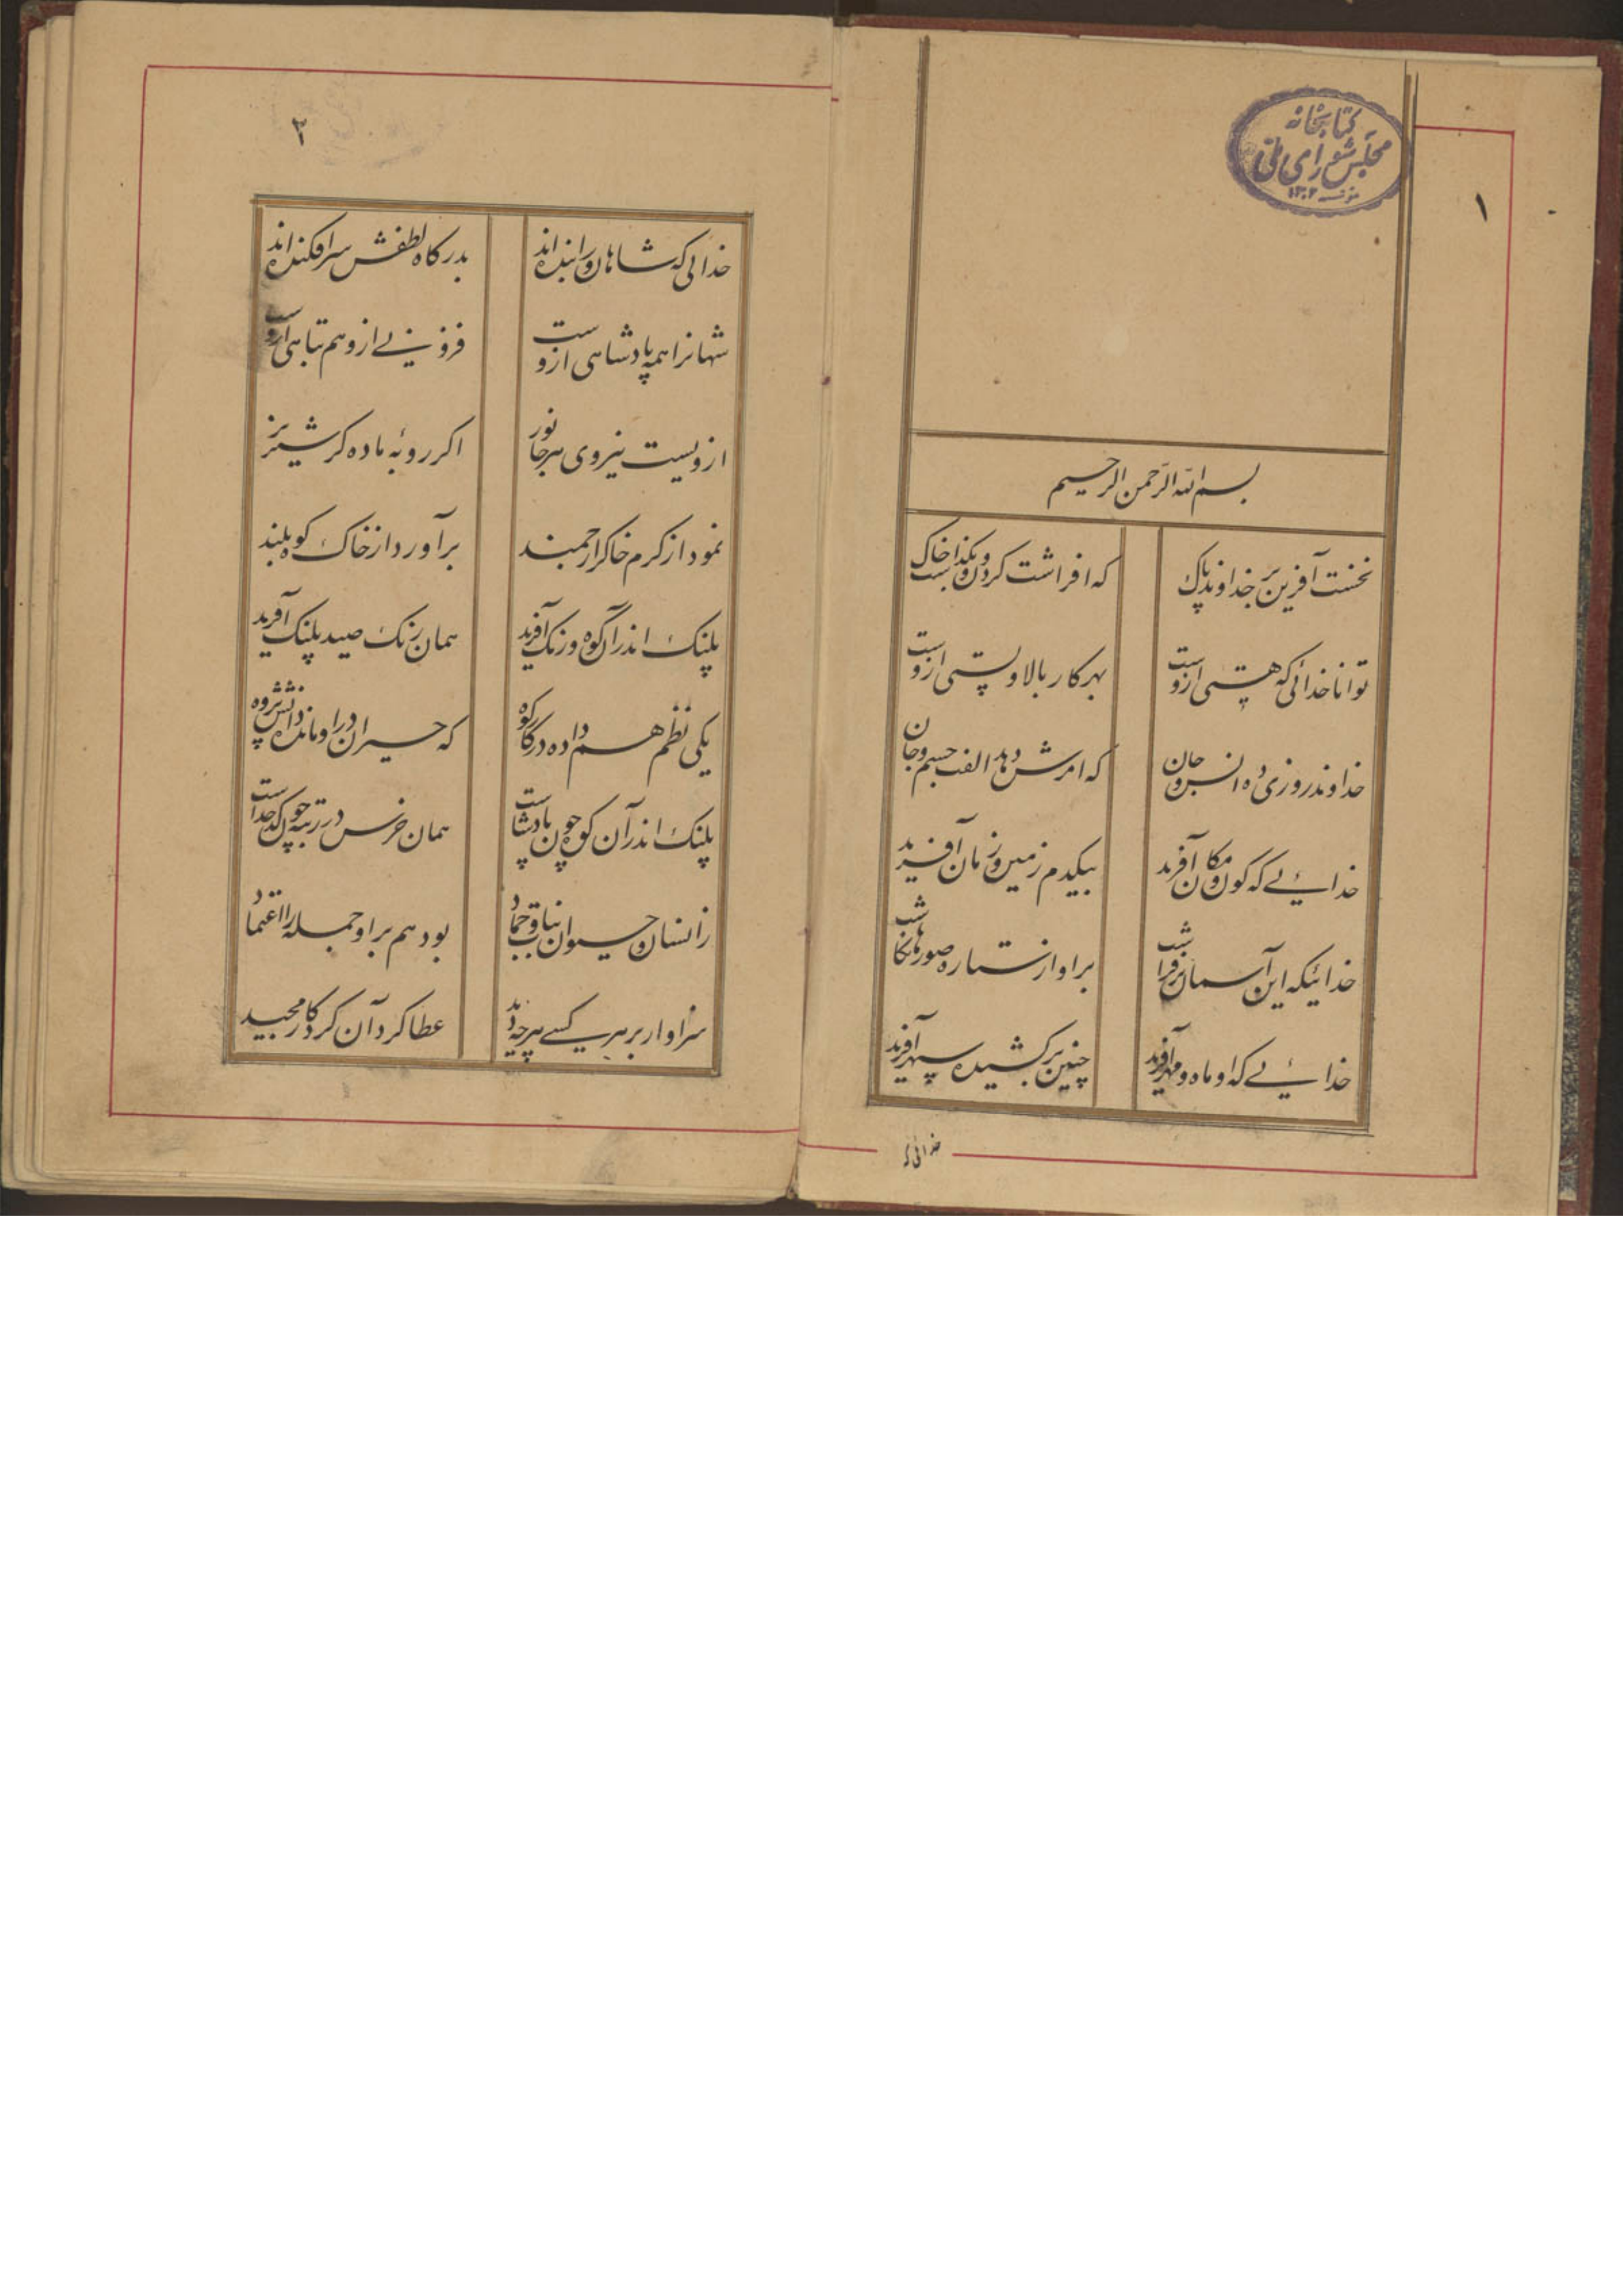 کتابخانه
مجلس شورای ملی
۱۳۰۲
۱
بسم الله الرحمن الرحیم
نخست آفرین بر خداوند پاک که افراشت کردون و بنشست خاک
توانا خدائی که هستی ازوست بهر کار بالا و پستی ازوست
خداوند روزی ده انس و جان که امرش دهد الفت جسم و جان
خدائیی که کون و مکان آفرید بیکدم زمین و زمان آفرید
خدائیکه این آسمان برفراشت براو از ستاره صورها نکاشت
خدائیی که او ماه و مهر آفرید چنین برکشیده سپهر آفرید
خدائی که
۲
خدائی که شاهان ورا بنده اند بدرکاه لطفش سرافکنده اند
شهانرا همه پادشاهی ازوست فزونیی ازو هم تباهی ازوست
ازویست نیروی هر جانور اکر روبه ماده کر شیر نر
نمود از کرم خاکرا ارجمند برآورد از خاک کوه بلند
پلنک اندر آن کوه و رنک آفرید همان رنک صید پلنک آفرید
یکی نظم هم داده در کار کوه که حیران در او مانده دانش پژوه
پلنک اندر آن کوه چون پادشاست همان خرس در رتبه چون کدخداست
ز انسان و حیوان نبات و جماد بود هم براو جمله را اعتماد
سزاوار بر هر کسی هرچه دید عطا کرد آن کردکار مجید